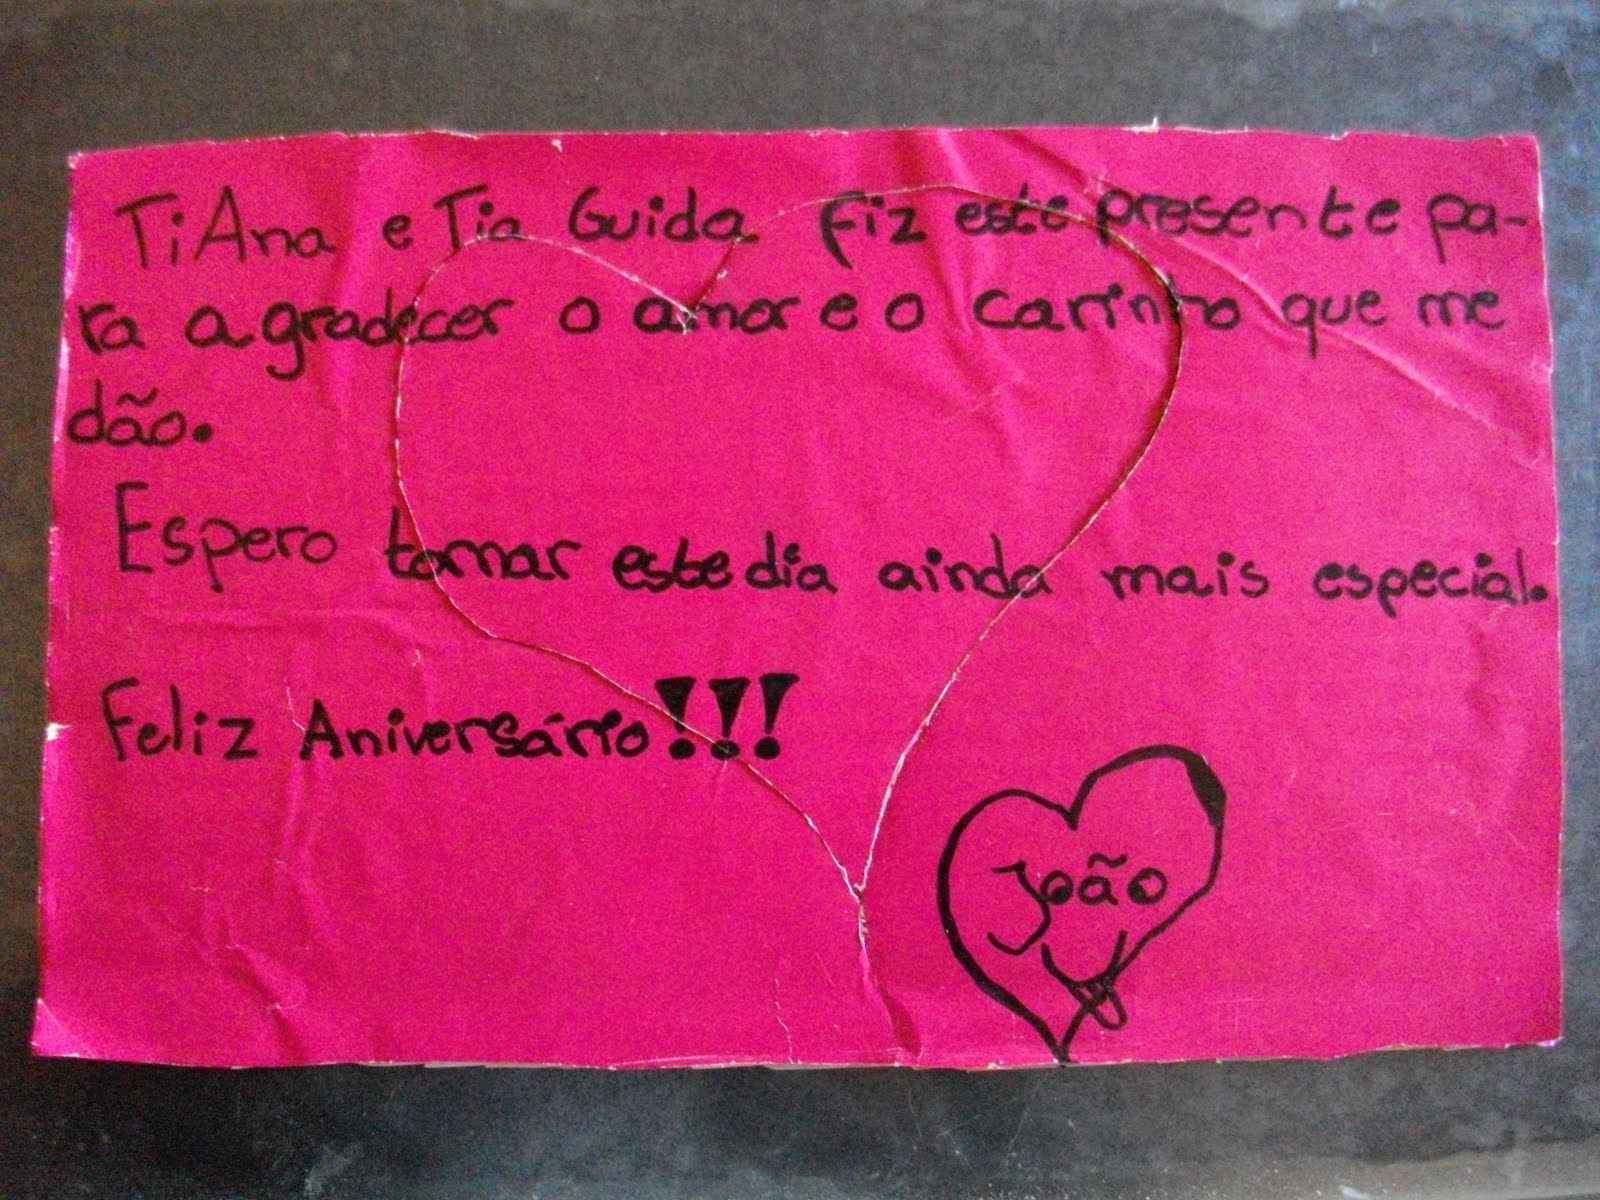 TiAna e Tia Guida fiz este presente pa-
ra agradecer o amor e o carinho que me
dão.
Espero tornar este dia ainda mais especial.
Feliz Aniversário!!!
João